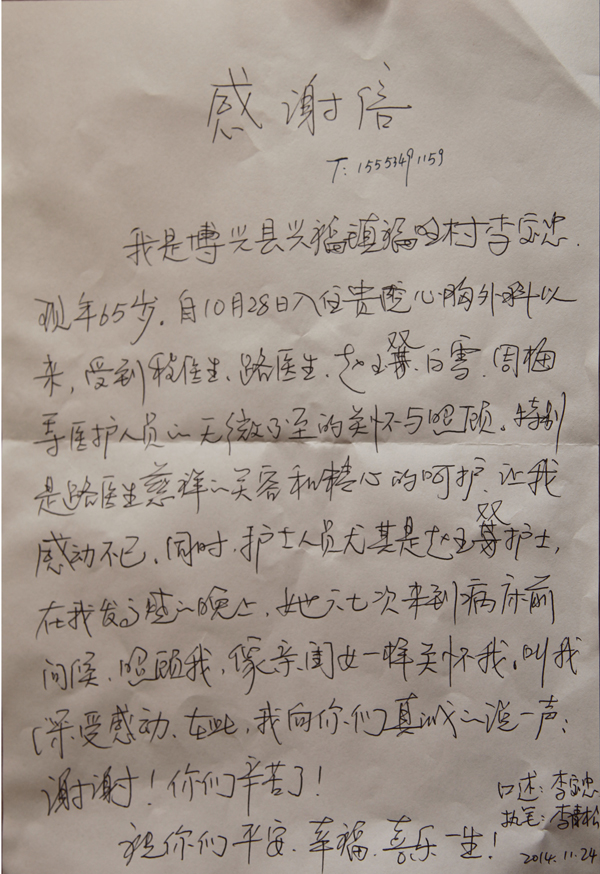 感谢信
T: 15553491159
我是博兴县兴福镇福旺村李宝忠.
现年65岁，自10月28日入住贵院心胸外科以
来，受到程医生、路医生、赵玉双、白雪、周梅
等医护人员的无微不至的关怀与照顾。特别
是路医生慈祥的笑容和精心的呵护，让我
感动不已，同时，护士人员尤其是赵玉双护士，
在我发高烧的晚上，她六七次来到病床前
问候、照顾我，像亲闺女一样关怀我，叫我
深受感动、在此，我向你们真诚的说一声：
谢谢！你们辛苦了！
祝你们平安、幸福、喜乐一生！
口述：李宝忠
执笔：李青松
2014.11.24